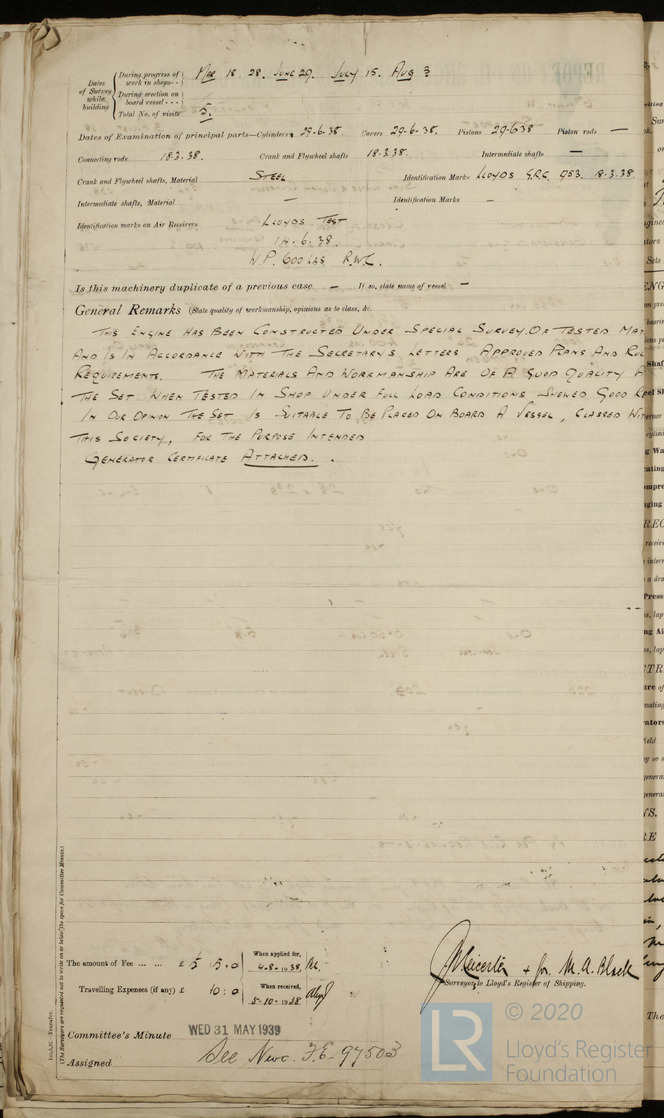 Dates of Survey while building
During progress of work in shops - - Mar 18. 28. June 29. July 15. Aug 3
During erection on board vessel - - -
Total No. of visits 5.
Dates of Examination of principal parts—Cylinders 29-6-38. Covers 29-6-38. Pistons 29-6-38 Piston rods —
Connecting rods 18.3.38. Crank and Flywheel shafts 18.3.38. Intermediate shafts —
Crank and Flywheel shafts, Material STEEL Identification Marks LLOYDS G.R.C. 953. 18.3.38
Intermediate shafts, Material — Identification Marks —
Identification marks on Air Receivers LLOYDS TEST
14.6.38.
W.P. 600 LBS R.W.C.
Is this machinery duplicate of a previous case — If so, state name of vessel —
General Remarks (State quality of workmanship, opinions as to class, &c.
THIS ENGINE HAS BEEN CONSTRUCTED UNDER SPECIAL SURVEY. OF TESTED MAT
AND IS IN ACCORDANCE WITH THE SECRETARY'S LETTERS, APPROVED PLANS AND RUL
REQUIREMENTS. THE MATERIALS AND WORKMANSHIP ARE OF A GOOD QUALITY A
THE SET WHEN TESTED IN SHOP UNDER FULL LOAD CONDITIONS, SHEWED GOOD R
IN OUR OPINION THE SET IS SUITABLE TO BE PLACED ON BOARD A VESSEL, CLASSED WIT
THIS SOCIETY, FOR THE PURPOSE INTENDED
GENERATOR CERTIFICATE ATTACHED.
(The Surveyors are requested not to write on or below the space for Committee Minute.)
The amount of Fee ... ... £ 5 : 5 : 0 When applied for, 4-8-1938.
Travelling Expenses (if any) £ 10 : 0 When received, 5-10-1938
+ for M. A. Black
Surveyor to Lloyd's Register of Shipping.
Committee's Minute WED 31 MAY 1939
Assigned See Nwc. F.E. 97503
© 2020
LR Lloyd's Register
Foundation